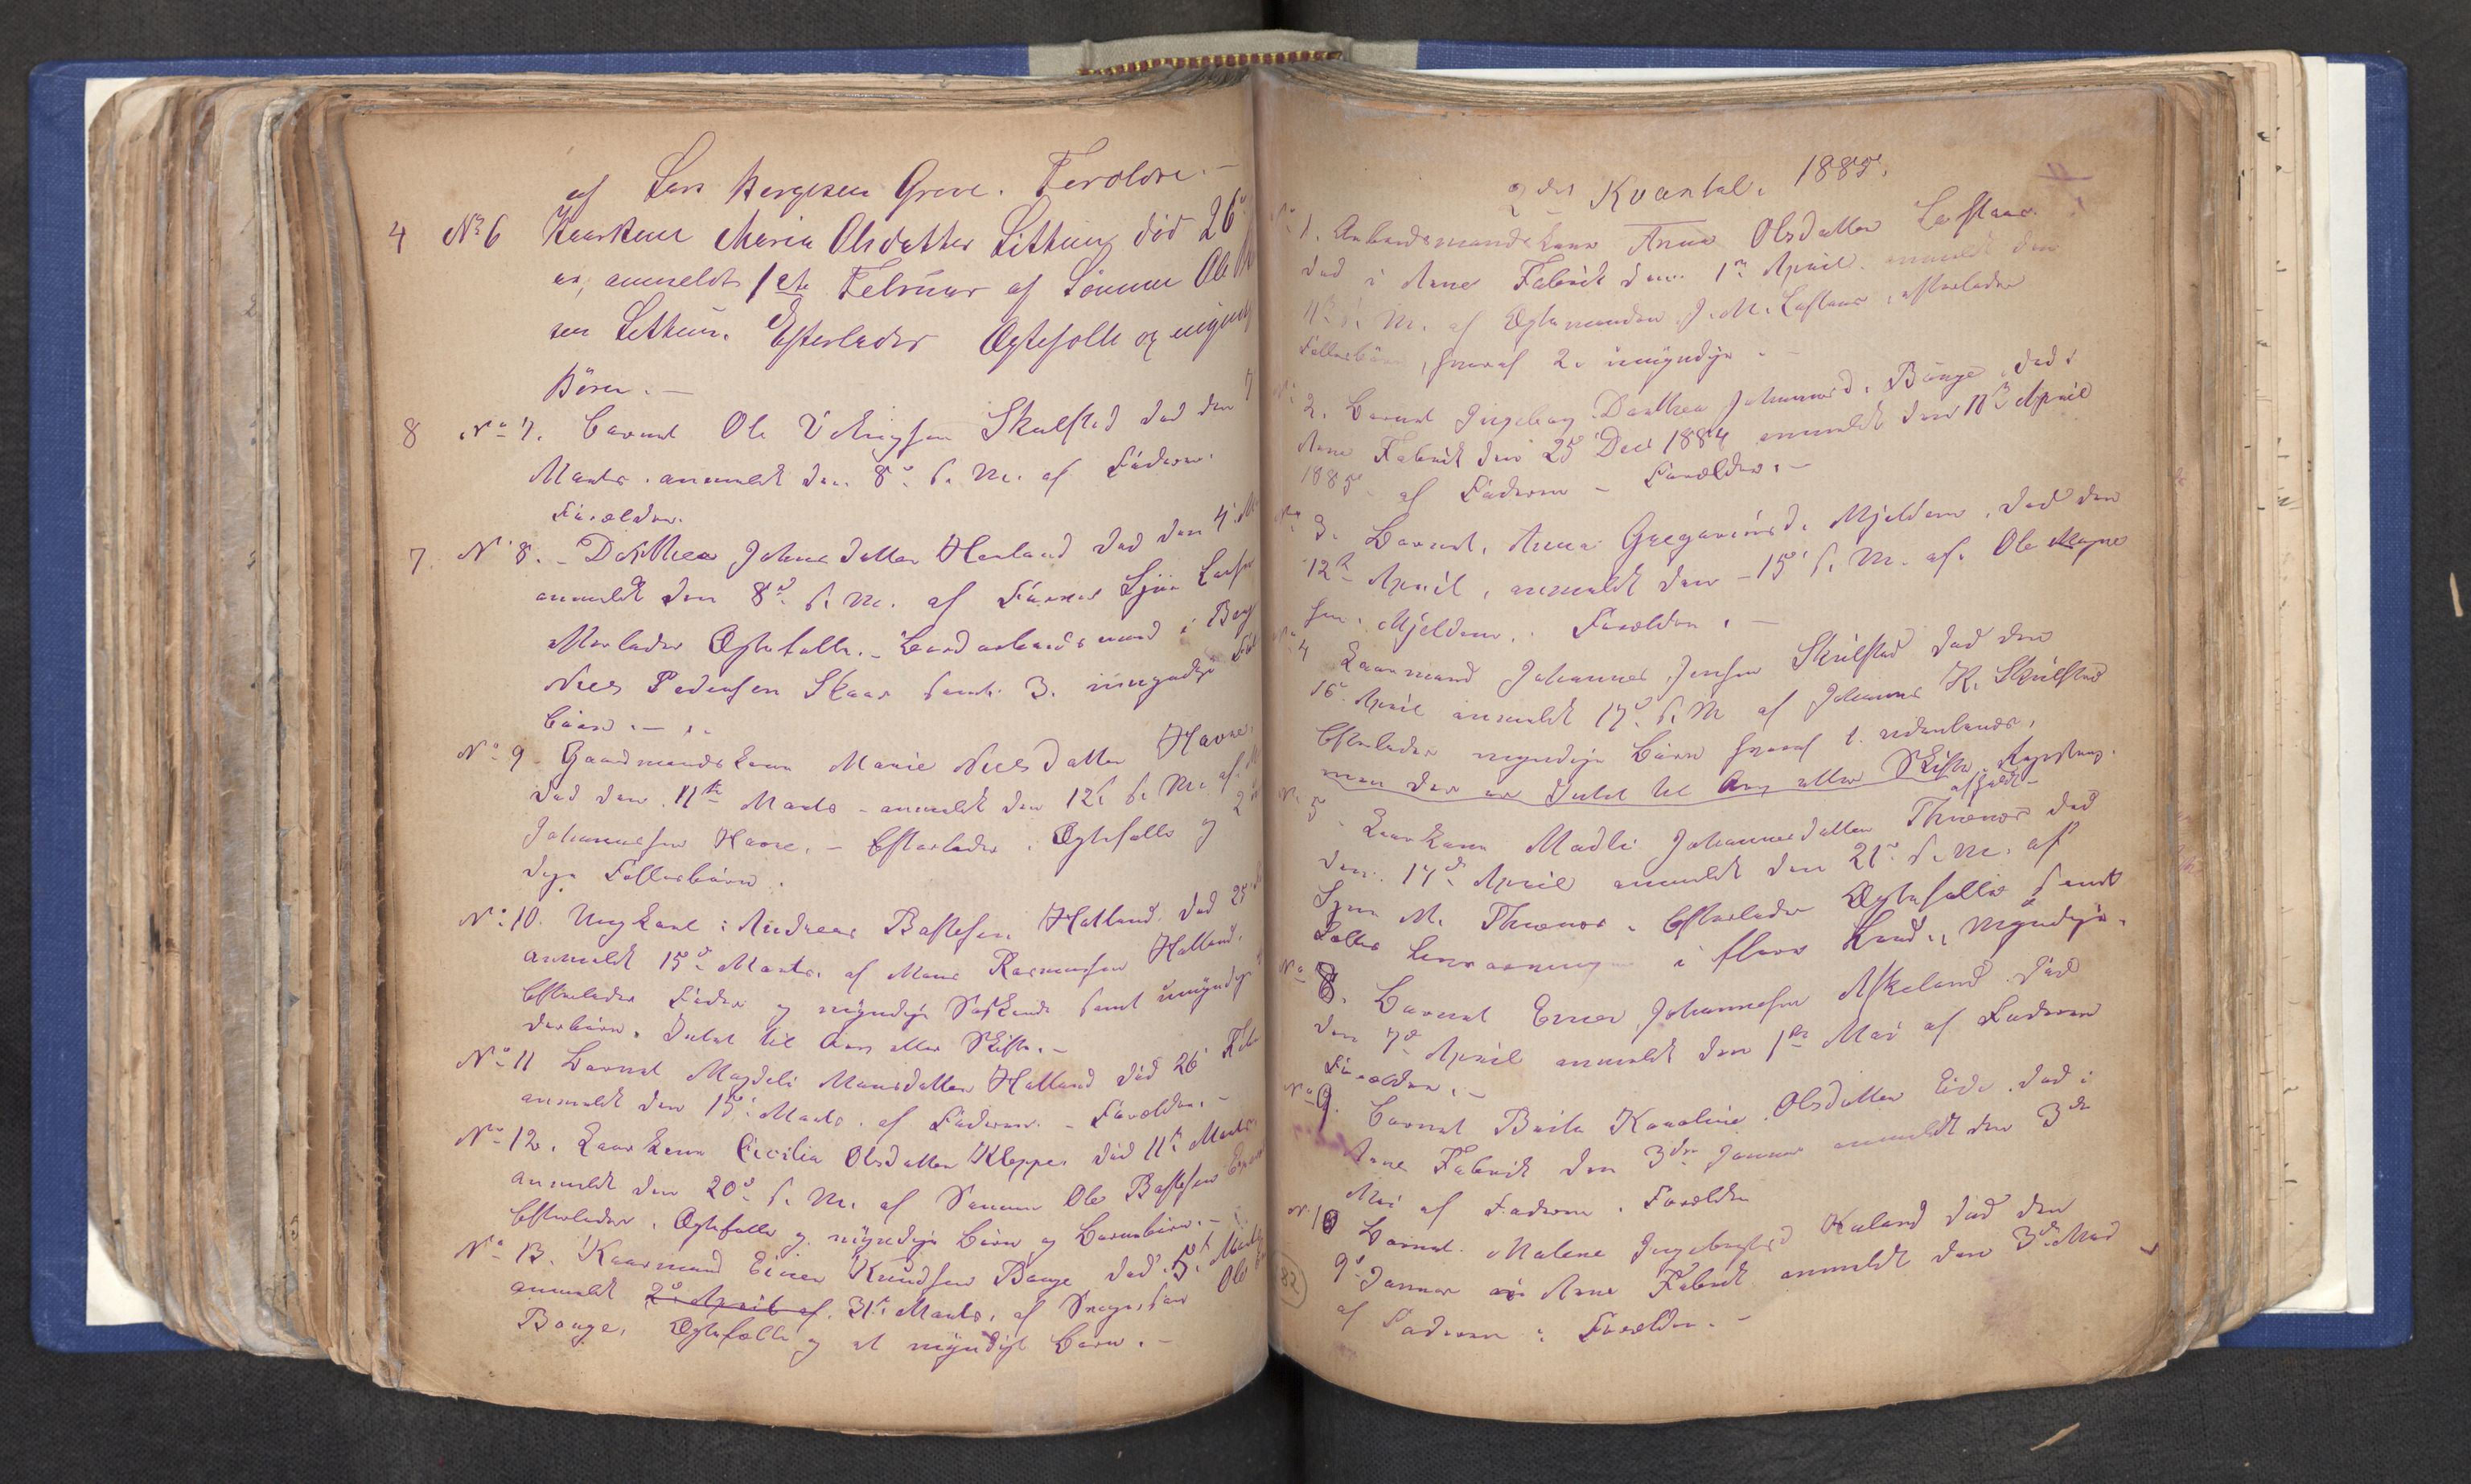 af Lars Børgesen Greve. Foroldre. -
4 No 6 Kaarkone Maria Olsdatter Litkun död 26
ar, anmeldt 1ste Februar af Sönnen Ole
sen Litkun. Efterlader Ægtefolle og umynd
Börn. -
8 No 7. Barnet Ole Vikingsen Skulstad död den 7
Marts. anmeldt den 8de s. M. af Faderen.
Forældre.
7. No 8. - Dorthea Johnsdatter Herland död den 4 M
anmeldt den 8de s. M. af Lars
Efterlader Ægtefælle. - Jordarbeidsmand i Berg
Niels Pedersen Skaar samt 3. umyndige
Börn. -
No 9 - Gaardmandskone Marie Nielsdatter Havre
död den 11te Marts - anmeldt den 12te s. M. af
Johannesen Havre. - Efterlader. Ægtefælle og 2
dige Fællesbörn.
No 10. Ungkarl: Andreas Baste‌sen Hatland. död 25
anmeldt 15de Marts. af Mons Rasmussen Hatland.
Efterlader Fader og myndige Söskende samt umyndige
derbörn. Intet til Arv eller Skifte. -
No 11 Barnet Magdeli Monsdatter Hatland död 26 Feb
anmeldt den 15de Marts. af Faderen. - Forældre. -
No 12. Kaarkone Cicilia Olsdatter Kleppe. död 11te Marts.
anmeldt den 20de s. M. af Sönnen Ole Bastesen
Efterlader. Ægtefælle og myndige Börn og Barnebörn. -
No 13. Kaarmand Einer Knudsen Bauge död. 5te Marts
anmeldt 2de April af. 31te Marts. af Ole
Bauge. Ægtefælle og et myndigt Barn. -
2det Kvartal. 1885.
No 1. Arbeidsmandskone Anna Olsdatter Loftaas.
död i Arne Fabrik den 1ste April. anmeldt den
11te s. M. af Ægtemanden J. M. Loftaas, efterlader
Fællesbörn, hvoraf 2. umyndige. -
No 2. Barnet Ingeborg Dorthea Johannesd. Bauge, död i
Arne Fabrik den 25de Dec 1884 anmeldt den 11te April
1885. af Faderen - Forældre. -
No 3. Barnet, Anna Gregoriusd. Mjeldem, död den
12te April, anmeldt den - 15de s. M. af. Ole Magne
sen. Mjeldem. Forældre. -
No 4 Kaarmand Johannes Jensen Skulstad död den
16de April anmeldt 17de s. M af Johannes K. Skulstad
Efterlader myndige Börn hvoraf 1. udenlands,
men der er Intet til Arv eller Skifte.
No 5. Kaarkone Madli Johannesdatter Thunæs död
den. 17de April anmeldt den 21de s. M. af
M. Thunæs. Efterlader Ægtefælle samt
Fælles i flere Kuld., myndige.
No 8. Barnet Einer Johannesen Askeland. död
den 7de April anmeldt den 1ste Mai af Faderen
Forældre. -
No 9. Barnet Berta Karoline Olsdatter Eide. död i
Arne Fabrik den 3die Januar anmeldt den 3die
Mai af Faderen. Forældre
No 10 Barnet. Malene Ingebrigtsd. död den
9de Januar i Arne Fabrik anmeldt den 3die Mai
82
af Faderen: Forældre. -